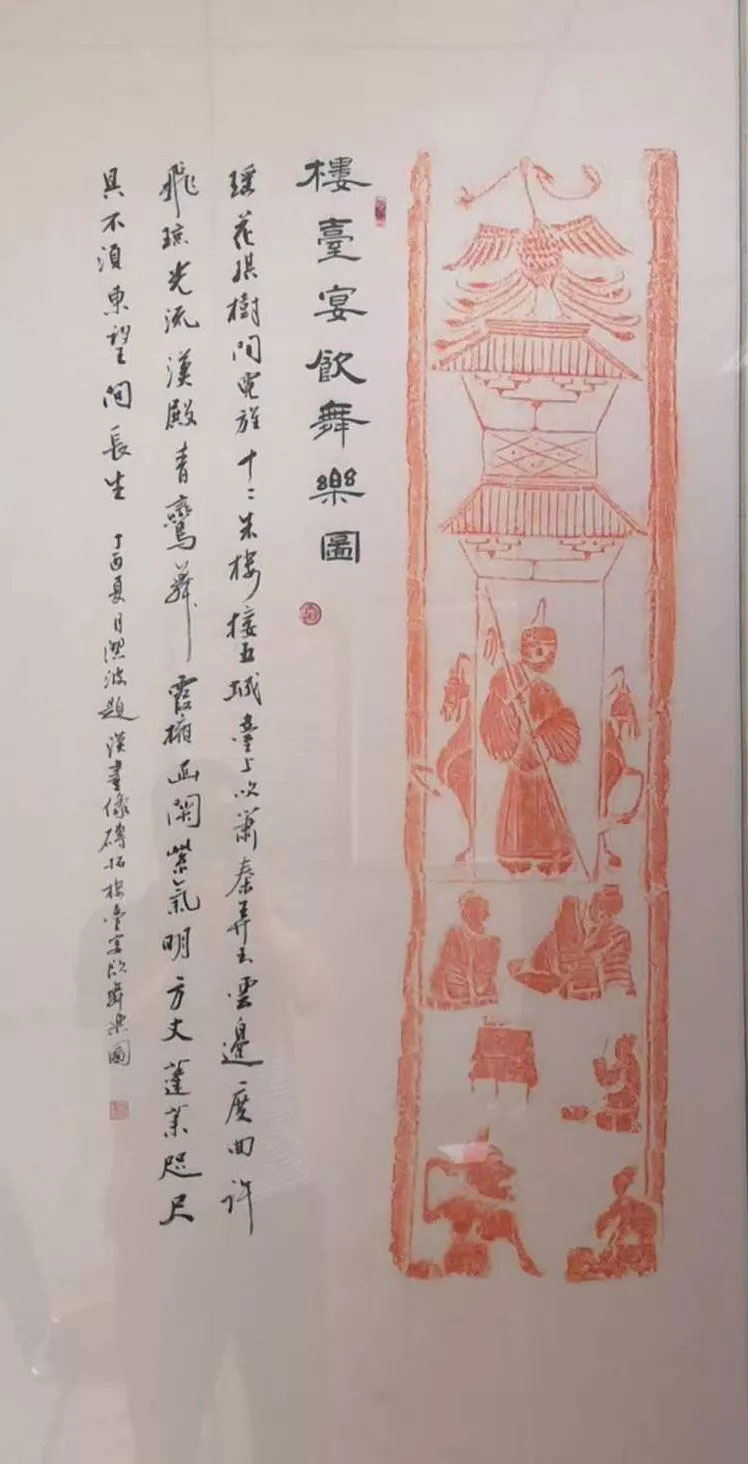 樓臺宴飲舞樂圖
瑤花琪樹間霓旌十二朱樓接五城臺上吹簫秦弄玉雲邊度曲許
飛瓊光流漢殿青鸞舞霞擁函關紫氣明方丈蓬萊咫尺
具不須東望問長生 丁酉夏月波題漢畫像磚拓樓臺宴飲舞樂圖